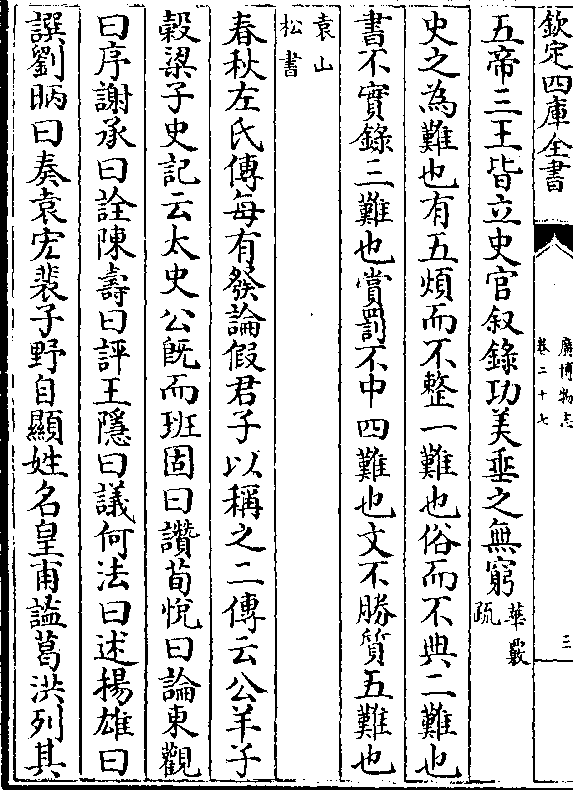 欽定四庫全書
廣博物志
卷二十七
三
五帝三王皆立史官叙錄功美垂之無窮華覈
疏
史之為難也有五煩而不整一難也俗而不典二難也
書不實錄三難也賞罰不中四難也文不勝質五難也
袁山
松書
春秋左氏傳每有發論假君子以稱之二傳云公羊子
穀梁子史記云太史公旣而班固曰讚荀悅曰論東觀
曰序謝承曰詮陳壽曰評王隱曰議何法曰述揚雄曰
譔劉昞曰奏袁宏裴子野自顯姓名皇甫謐葛洪列其